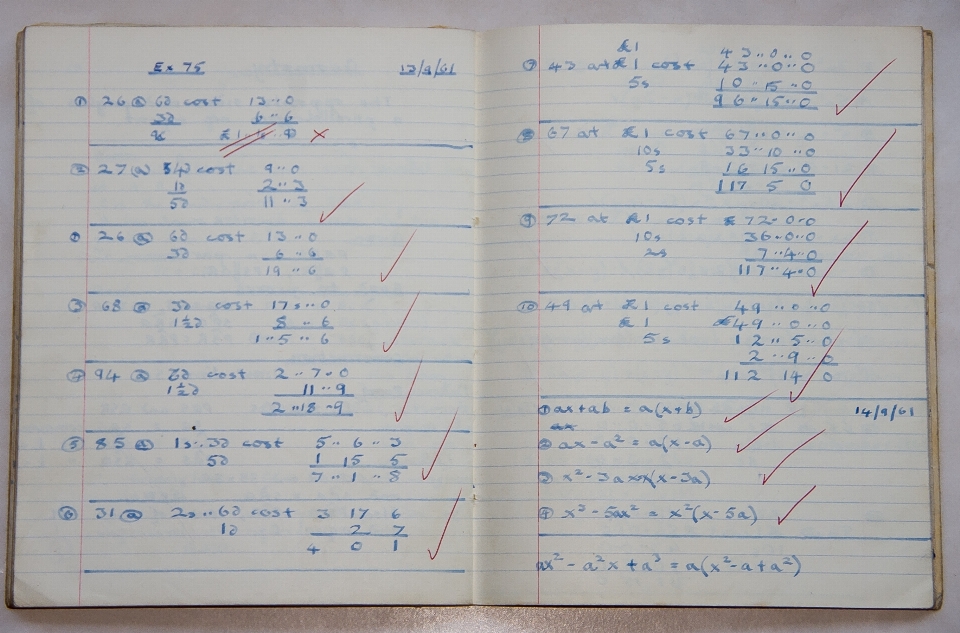 Ex 75 13/9/61
① 26 @ 6d cost 13 ·· 0
3d 6 ·· 6
② 27 @ 4d cost 9 ·· 0
1d 2 ·· 3
5d 11 ·· 3
① 26 @ 6d cost 13 ·· 0
3d 6 ·· 6
19 ·· 6
③ 68 @ 3d cost 17s ·· 0
1½d 8 ·· 6
1 ·· 5 ·· 6
④ 94 @ cost 2 ·· 7 ·· 0
1½d 11 ·· 9
2 ·· 18 ·· 9
⑤ 85 @ 1s ·· 3d cost 5 ·· 6 ·· 3
5d 1 15 5
7 ·· 1 ·· 8
⑥ 31 @ 2s ·· 6d cost 3 17 6
1d 2 7
4 0 1
£1 43 ·· 0 ·· 0
⑦ 43 at £1 cost 43 ·· 0 ·· 0
5s 10 ·· 15 ·· 0
96 ·· 15 ·· 0
⑧ 67 at £1 cost 67 ·· 0 ·· 0
10s 33 ·· 10 ·· 0
5s 16 15 ·· 0
117 5 0
⑨ 72 at £1 cost £72 ·· 0 ·· 0
10s 36 ·· 0 ·· 0
2s 7 ·· 4 ·· 0
117 ·· 4 ·· 0
⑩ 49 at £1 cost 49 ·· 0 ·· 0
£1 £49 ·· 0 ·· 0
5s 12 ·· 5 ·· 0
2 ·· 9 ·· 0
112 14 0
① ax + ab = a(x+b) 14/9/61
② ax - a² = a(x-a)
③ x² - 3ax = x(x-3a)
④ x³ - 5ax² = x²(x-5a)
ax² - a²x + a³ = a(x² - a + a²)